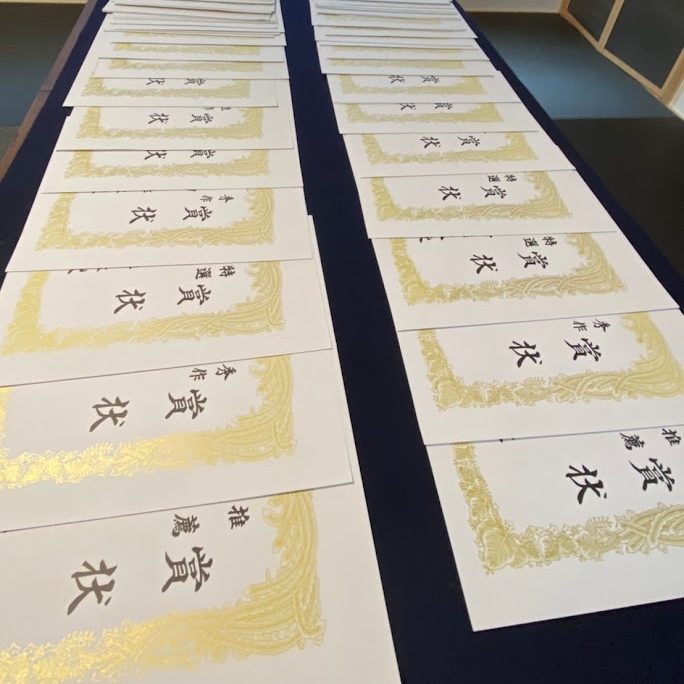 賞状
賞状
賞状
秀作
賞状
特選
賞状
秀作
賞状
推薦
賞状
賞状
賞状
賞状
特選
賞状
特選
賞状
秀作
賞状
推薦
賞状